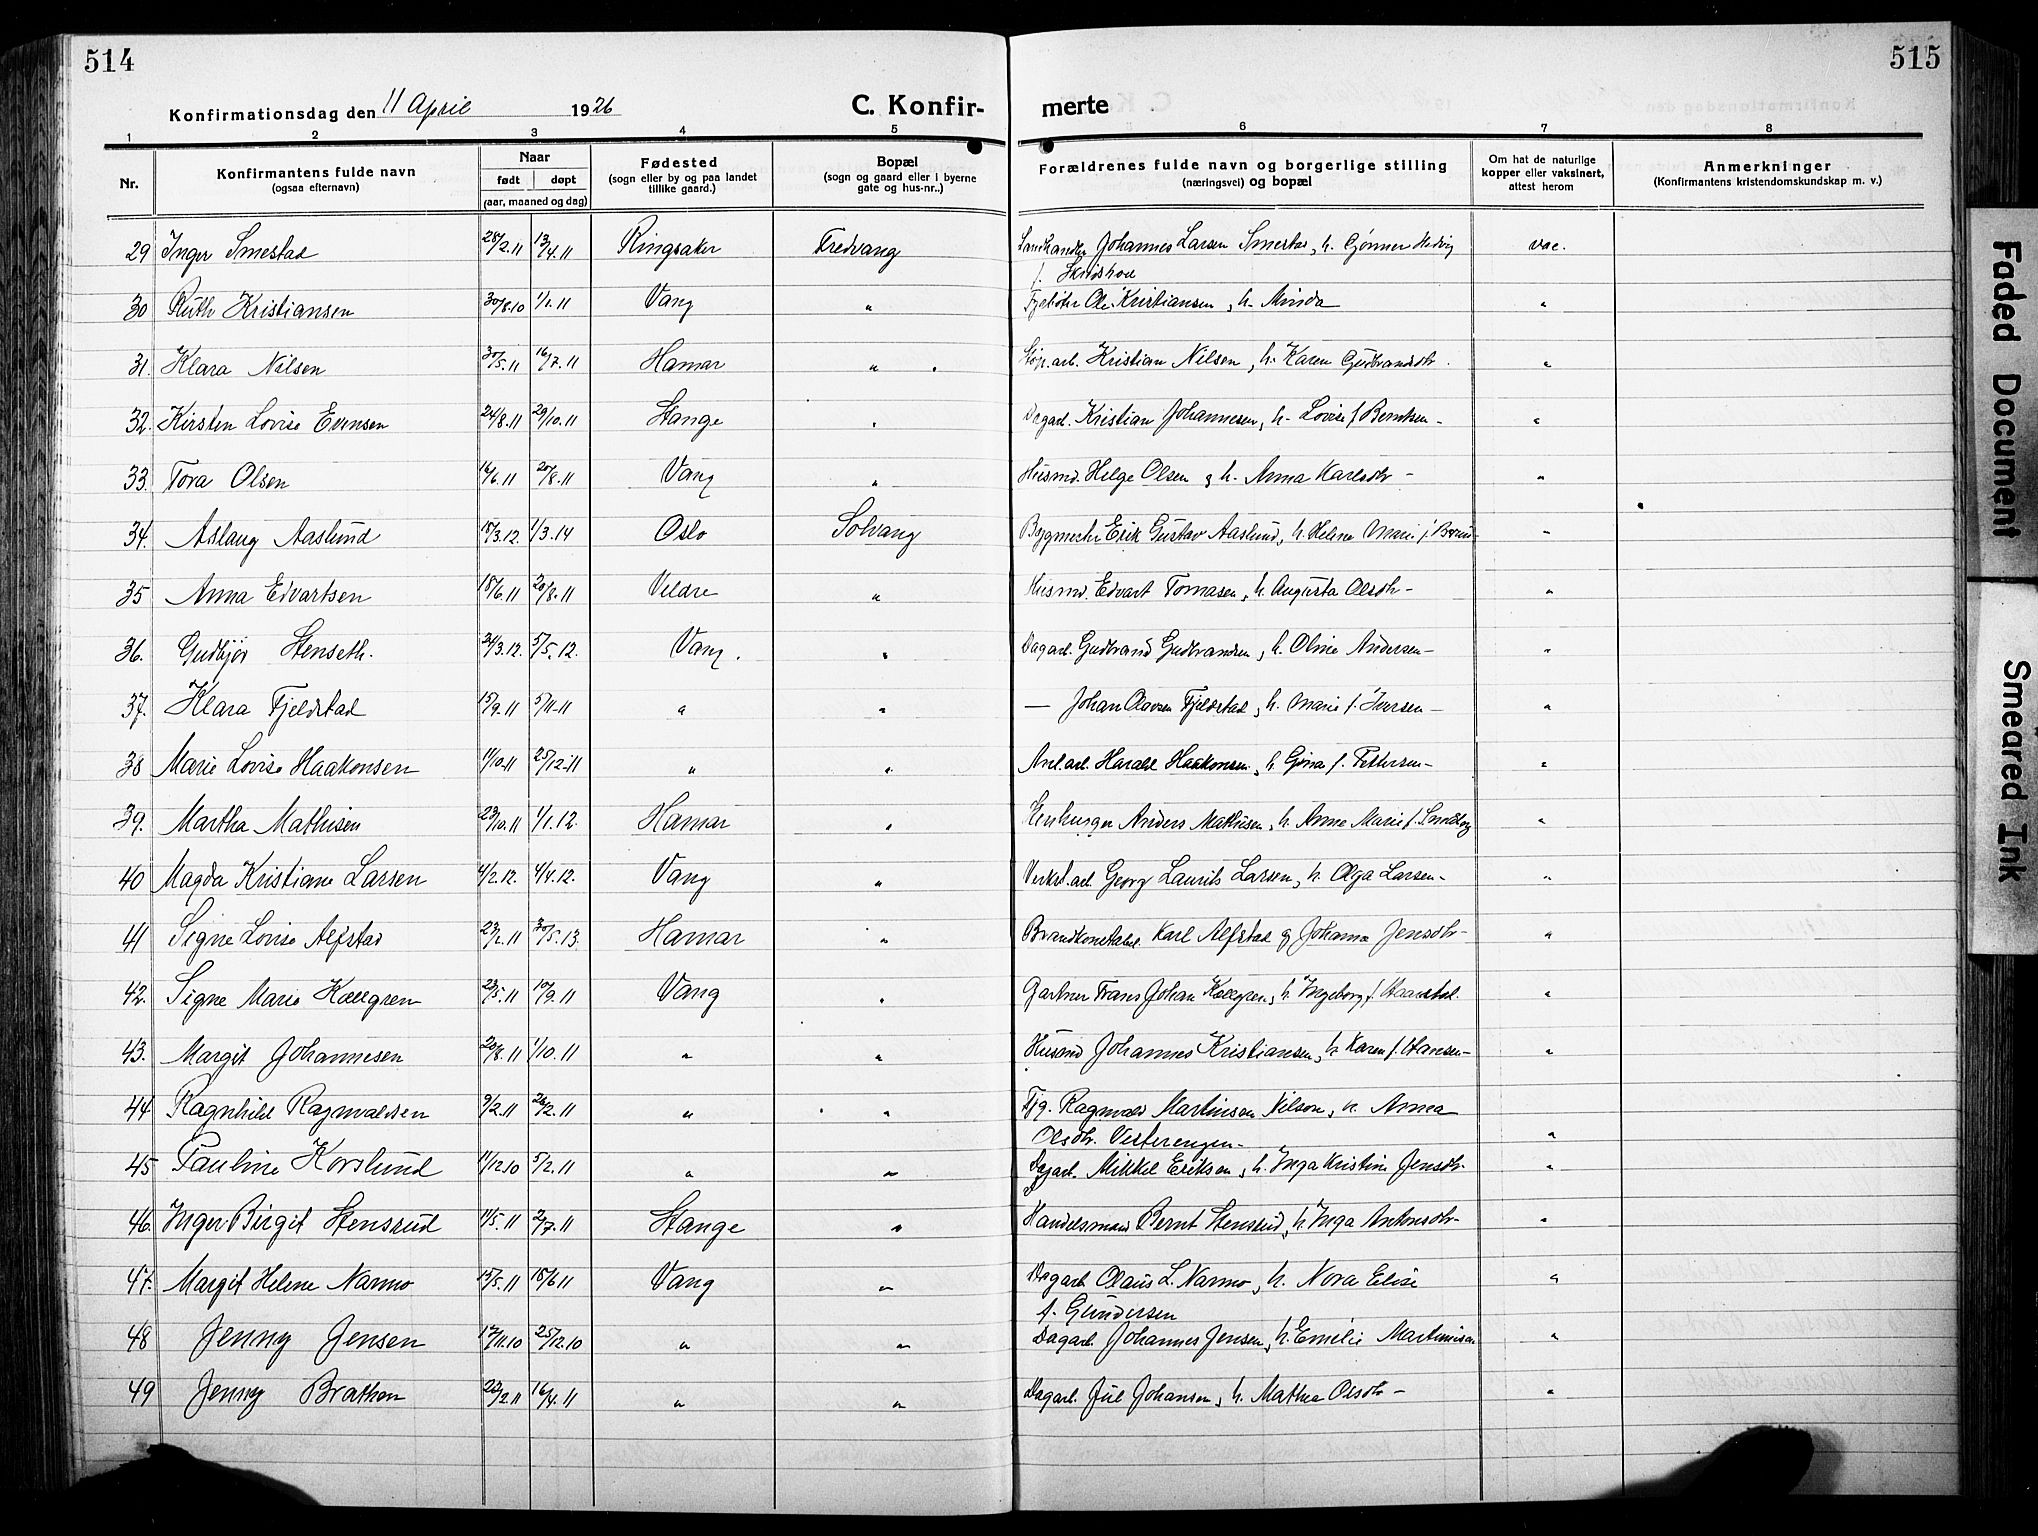 514
515
Konfirmationsdag den 11 April 1926
C. Konfir-
merte
1 2 3 4 5 6 7 8
Nr.
Konfirmantens fulde navn
(ogsaa efternavn)
Naar
født døpt
(aar, maaned og dag)
Fødested
(sogn eller by og paa landet
tillike gaard.)
Bopæl
(sogn og gaard eller i byerne
gate og hus-nr..)
Forældrenes fulde navn og borgerlige stilling
(næringsvei) og bopæl
Om hat de naturlige
kopper eller vaksinert,
attest herom
Anmerkninger
(Konfirmantens kristendomskundskap m. v.)
29 Inger Smestad 28/2.11 13/4.11 Ringsaker Fredvang Johannes Larsen Smestad, h. Gjønner Hedvig vac.
f. Skridshol
30 Ruth Kristiansen 30/8.10 1/1.11 Vang " Ole Kristiansen, h. Minda "
31. Klara Nilsen 30/5.11 16/7.11 Hamar " Kristian Nilsen, h. Karen Gudbrandsdtr. "
32. Kirsten Lovise Evensen 24/8.11 29/10.11 Stange " Dagarb. Kristian Johannesen, h. Lovise f. Berntsen - "
33. Tora Olsen 16/6.11 20/8.11 Vang " Husmd. Helge Olsen & h. Anna Karlsdtr - "
34. Aslaug Aaslund 15/3.12. 1/3.14 Oslo Solvang Bygmestr Erik Gustav Aaslund, h. Helene Marie f. "
35 Anna Edvartsen 18/6.11 20/8.11 Veldre " Husmd. Edvart Tomasen, h. Augusta Olsdtr - "
36. Gudbjør Stenseth. 24/3.12. 5/5.12. Vang. " Dagarb. Gudbrand Gudbrandsen, h. Oline Andersen - "
37. Klara Fjeldstad 15/9.11 5/11-11 " " — Johan Olavsen Fjeldstad, h. Marie f. Iversen - "
38 Marie Lovise Haakonsen 11/10.11 25/12.11 " " Anl.arb. Harald Haakonsen, h. Gina f. Pettersen - "
39. Martha Mathisen 23/10.11 1/1.12. Hamar " Anders Mathisen, h. Anne Marie f. "
40 Magda Kristiane Larsen 4/2.12. 4/4.12. Vang " Verkst.arb. Georg Laurits Larsen, h. Olga Larsen - "
41 Signe Lovise Alfstad 23/2.11 30/5.13. Hamar " Brandkonstabel Karl Alfstad & Johanna Jensdtr - "
42. Signe Marie Källgren 23/5.11 10/9.11 Vang " Gartner Frans Johan Källgren, h. Ingeborg f. "
43. Margit Johannesen 20/8.11 1/10.11 " " Husmd Johannes Kristiansen, h. Karen f. Hansen - "
44 Ragnhild Ragnvaldsen 9/2.11 26/2.11 " " Ragnvald Martinsen Nilsen, h. Anna
Olsdtr. Vesterengen - "
45 Pauline Korslund 11/12.10 5/2.11 " " Dagarb. Mikkel Eriksen, h. Inga Kristine Jensdtr - "
46. Inger Birgit Stensrud 14/5.11 2/7.11 Stange " Handelsmand Bernt Stensrud, h. Inga Antonsdtr - "
47. Margit Helene Narmo 15/5.11 18/6 11 Vang " Dagarb. Olaus L. Narmo, h. Nora Elise "
f. Gundersen
48 Jenny Jensen 17/11.10 25/12.10 " " Dagarb. Johannes Jensen, h. Emelie Martinsen "
49 Jenny Brathen 22/2.11 16/4.11 " " Dagarb. Jul Johansen, h. Mathea Olsdtr - "
Faded Document
Smeared Ink